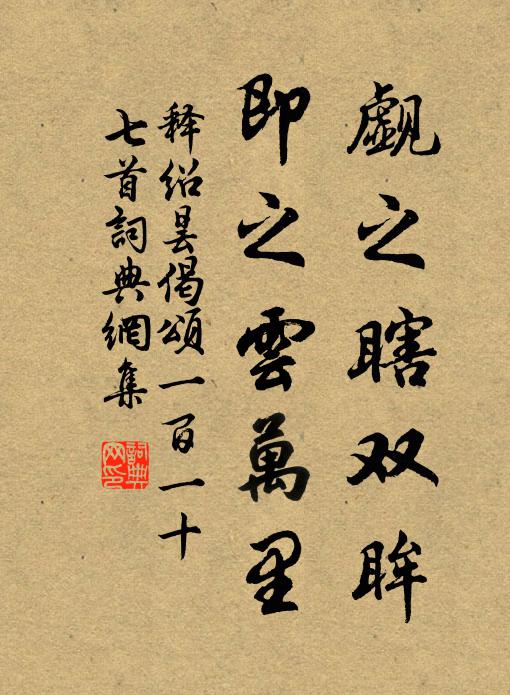 觑之瞎双眸
即之雲萬里
释绍昙偈頌一百一十
七首詞典網集
詞典
网印